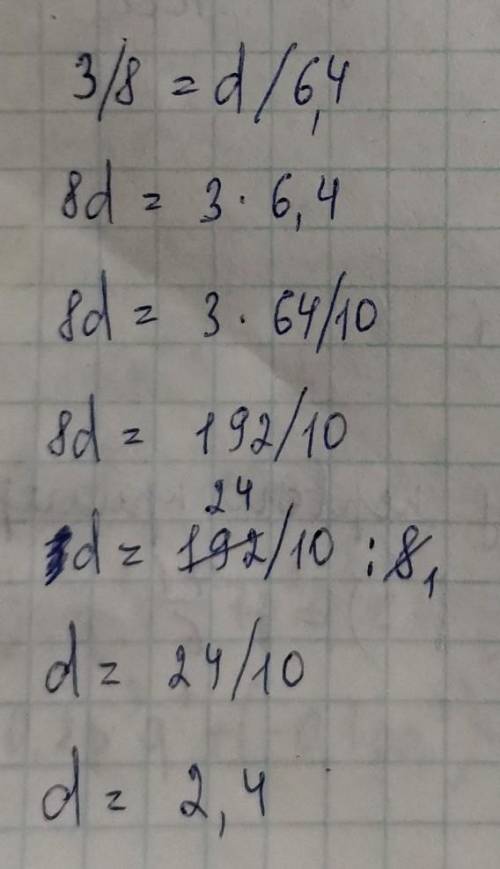 3/8 = d/6,4
8d = 3 · 6,4
8d = 3 · 64/10
8d = 192/10
24
d = 192/10 : 8 1
d = 24/10
d = 2,4